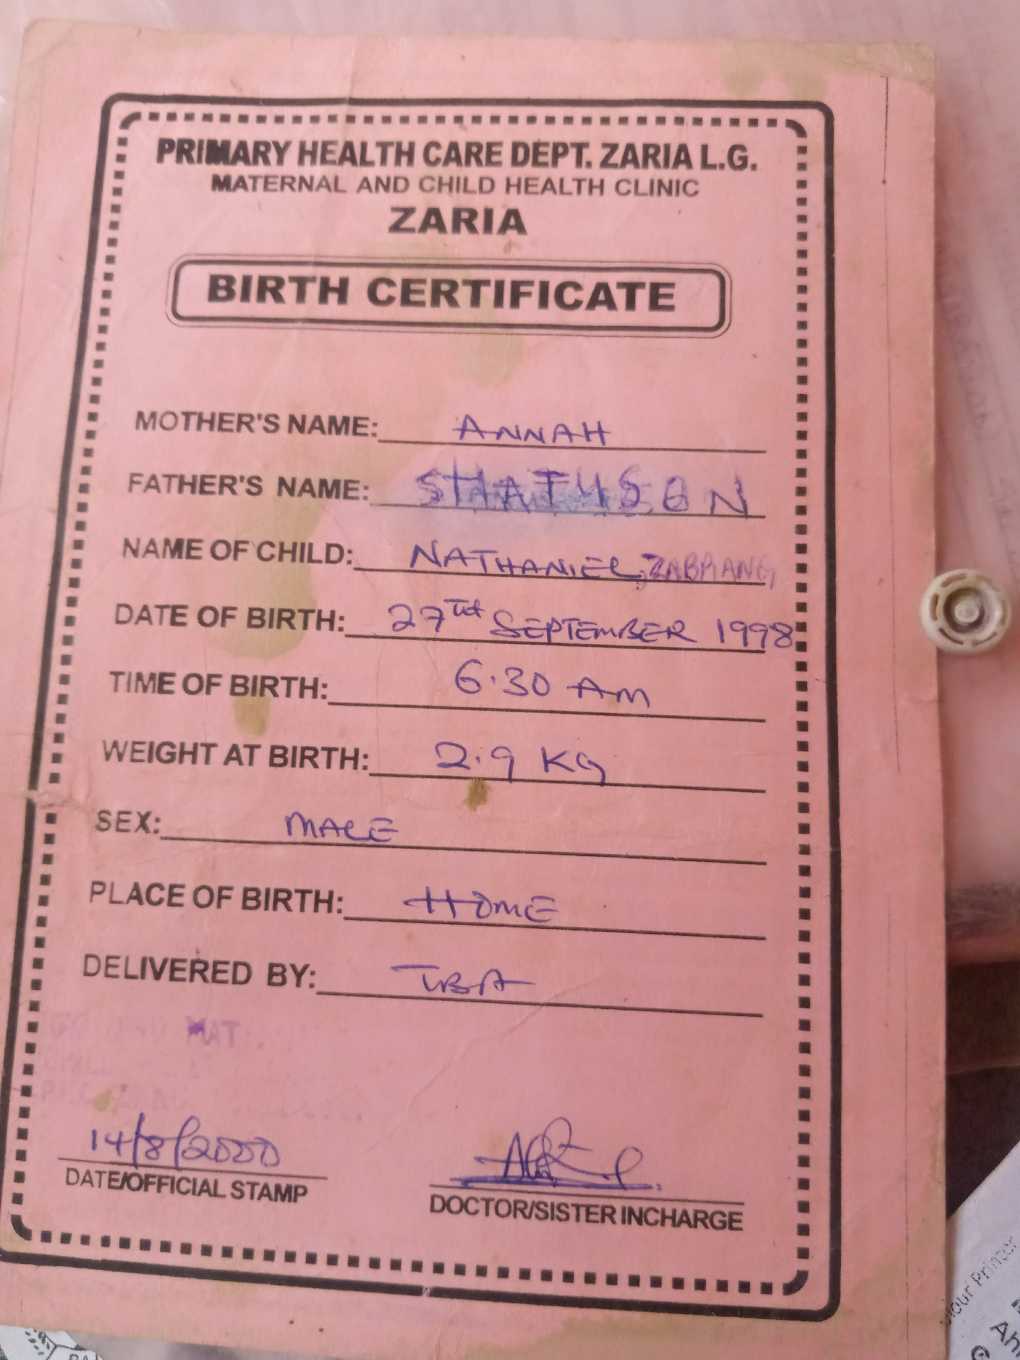 PRIMARY HEALTH CARE DEPT. ZARIA L.G.
MATERNAL AND CHILD HEALTH CLINIC
ZARIA
BIRTH CERTIFICATE
MOTHER'S NAME: ANNAH
FATHER'S NAME:
NAME OF CHILD: NATHANIEL,
DATE OF BIRTH: 27TH SEPTEMBER 1998
TIME OF BIRTH: 6.30 AM
WEIGHT AT BIRTH: 2.9 KG
SEX: MALE
PLACE OF BIRTH: HOME
DELIVERED BY: TBA
MAT
14/8/2000
DATE/OFFICIAL STAMP
DOCTOR/SISTER INCHARGE